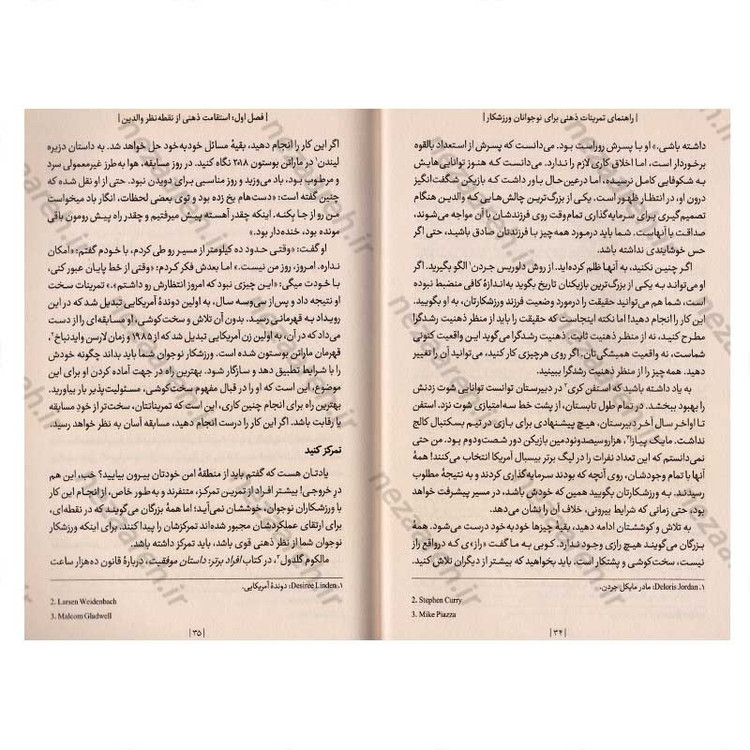 | راهنمای تمرینات ذهنی برای نوجوانان ورزشکار |
داشته باشی.» او با پسرش روراست بود. می‌دانست که پسرش از استعداد بالقوه
برخوردار است، اما اخلاق کاری لازم را ندارد. می‌دانست که هنوز توانایی‌هایش
به شکوفایی کامل نرسیده، اما درعین حال باور داشت که بازیکن شگفت‌انگیز
درون او، در انتظار ظهور است. یکی از بزرگ‌ترین چالش‌هایی که والدین هنگام
تصمیم‌گیری برای سرمایه‌گذاری تمام‌وقت روی فرزندشان با آن مواجه می‌شوند،
صداقت با آنهاست. شما باید درمورد همه‌چیز با فرزندتان صادق باشید، حتی اگر
حس خوشایندی نداشته باشد.
اگر چنین نکنید، به آنها ظلم کرده‌اید. از روش دلوریس جردن¹ الگو بگیرید. اگر
او می‌تواند به یکی از بزرگ‌ترین بازیکنان تاریخ بگوید به‌اندازهٔ کافی منضبط نبوده
است، شما هم می‌توانید حقیقت را درمورد وضعیت فرزند ورزشکارتان، به او بگویید.
این کار را انجام دهید! اما نکته اینجاست که حقیقت را باید از منظر ذهنیت رشدگرا
مطرح کنید، نه از منظر ذهنیت ثابت. ذهنیت رشدگرا می‌گوید این واقعیت کنونی
شماست، نه واقعیت همیشگی‌تان. اگر روی هرچیزی کار کنید، می‌توانید آن را تغییر
دهید. همه‌چیز را از منظر ذهنیت رشدگرا ببینید.
به یاد داشته باشید که استفن کری² در دبیرستان توانست توانایی شوت زدنش
را بهبود ببخشد. در تمام طول تابستان، از پشت خط سه‌امتیازی شوت نزد. استفن
تا اواخر سال آخر دبیرستان، هیچ پیشنهادی برای بازی در تیم بسکتبال کالج
نداشت. مایک پیازا³، هزاروسیصدونودمین بازیکن دور شصت‌ودوم بود. من حتی
نمی‌دانستم که این تعداد نفرات را در لیگ برتر بیسبال آمریکا انتخاب می‌کنند! همهٔ
آنها با تمام وجودشان، روی آنچه که بودند سرمایه‌گذاری کردند و به نتیجهٔ مطلوب
رسیدند. به ورزشکارتان بگویید همین که خودش باشد، در مسیر پیشرفت خواهد
بود، حتی زمانی که شرایط بیرونی، خلاف آن را نشان می‌دهد.
به تلاش و کوششتان ادامه دهید، بقیهٔ چیزها خودبه‌خود درست می‌شود. همهٔ
بزرگان می‌گویند هیچ رازی وجود ندارد. کوبی به ما گفت «راز»ی که درواقع راز
نیست، سخت‌کوشی و پشتکار است. باید بخواهید که بیشتر از دیگران تلاش کنید.
۱. Deloris Jordan: مادر مایکل جردن.
2. Stephen Curry
3. Mike Piazza
| ۳۴ |
| فصل اول: استقامت ذهنی از نقطه‌نظر والدین |
اگر این کار را انجام دهید، بقیهٔ مسائل خودبه‌خود حل خواهد شد. به داستان دزیره
لیندن¹ در ماراتن بوستون ۲۰۱۸ نگاه کنید. در روز مسابقه، هوا به‌طرز غیرمعمولی سرد
و مرطوب بود، باد می‌وزید و روز مناسبی برای دویدن نبود. حتی از او نقل شده که
چنین گفته است: «دست‌هام یخ زده بود و توی بعضی لحظات، انگار باد میخواست
من رو از جا بکنه. اینکه چقدر آهسته پیش میرفتیم و چقدر راه پیش رومون باقی
مونده بود، خنده‌دار بود.»
او گفت: «وقتی حدود ده کیلومتر از مسیر رو طی کردم، با خودم گفتم: «امکان
نداره. امروز، روز من نیست.» اما بعدش فکر کردم: «وقتی از خط پایان عبور کنی،
با خودت میگی: «این چیزی نبود که امروز انتظارش رو داشتم.».» تمرینات سخت
او نتیجه داد و پس از سی‌وسه سال، به اولین دوندهٔ آمریکایی تبدیل شد که در این
رویداد به قهرمانی رسید. بدون آن تلاش و سخت‌کوشی، او مسابقه‌ای را از دست
می‌داد که در آن، به اولین زن آمریکایی تبدیل شد که از ۱۹۸۵ و زمان لارسن وایدنباخ²،
قهرمان ماراتن بوستون شده است. ورزشکار نوجوان شما باید بداند چگونه خودش
را با شرایط تطبیق دهد و سازگار شود. بهترین راه در جهت آماده کردن او برای این
موضوع، این است که او را در قبال مفهوم سخت‌کوشی، مسئولیت‌پذیر بار بیاورید.
بهترین راه برای انجام چنین کاری، این است که تمریناتتان، سخت‌تر از خودِ مسابقه
یا رقابت باشد. اگر این کار را درست انجام دهید، مسابقه آسان به نظر خواهد رسید.
تمرکز کنید
یادتان هست که گفتم باید از منطقهٔ امن خودتان بیرون بیایید؟ خب، این هم
در خروجی! بیشتر افراد از تمرین تمرکز، متنفرند و به‌طور خاص، از انجام این کار
با ورزشکاران نوجوان، خوششان نمی‌آید؛ اما همهٔ بزرگان می‌گویند که در نقطه‌ای،
برای ارتقای عملکردشان مجبور شده‌اند تمرکزشان را پیدا کنند. برای اینکه ورزشکار
نوجوان شما از نظر ذهنی قوی باشد، باید تمرکز داشته باشد.
مالکوم گلدول³، در کتاب افراد برتر: داستان موفقیت، دربارهٔ قانون ده‌هزار ساعت
۱. Desiree Linden: دوندهٔ آمریکایی.
2. Larsen Weidenbach
3. Malcom Gladwell
| ۳۵ |
nezaareh.ir